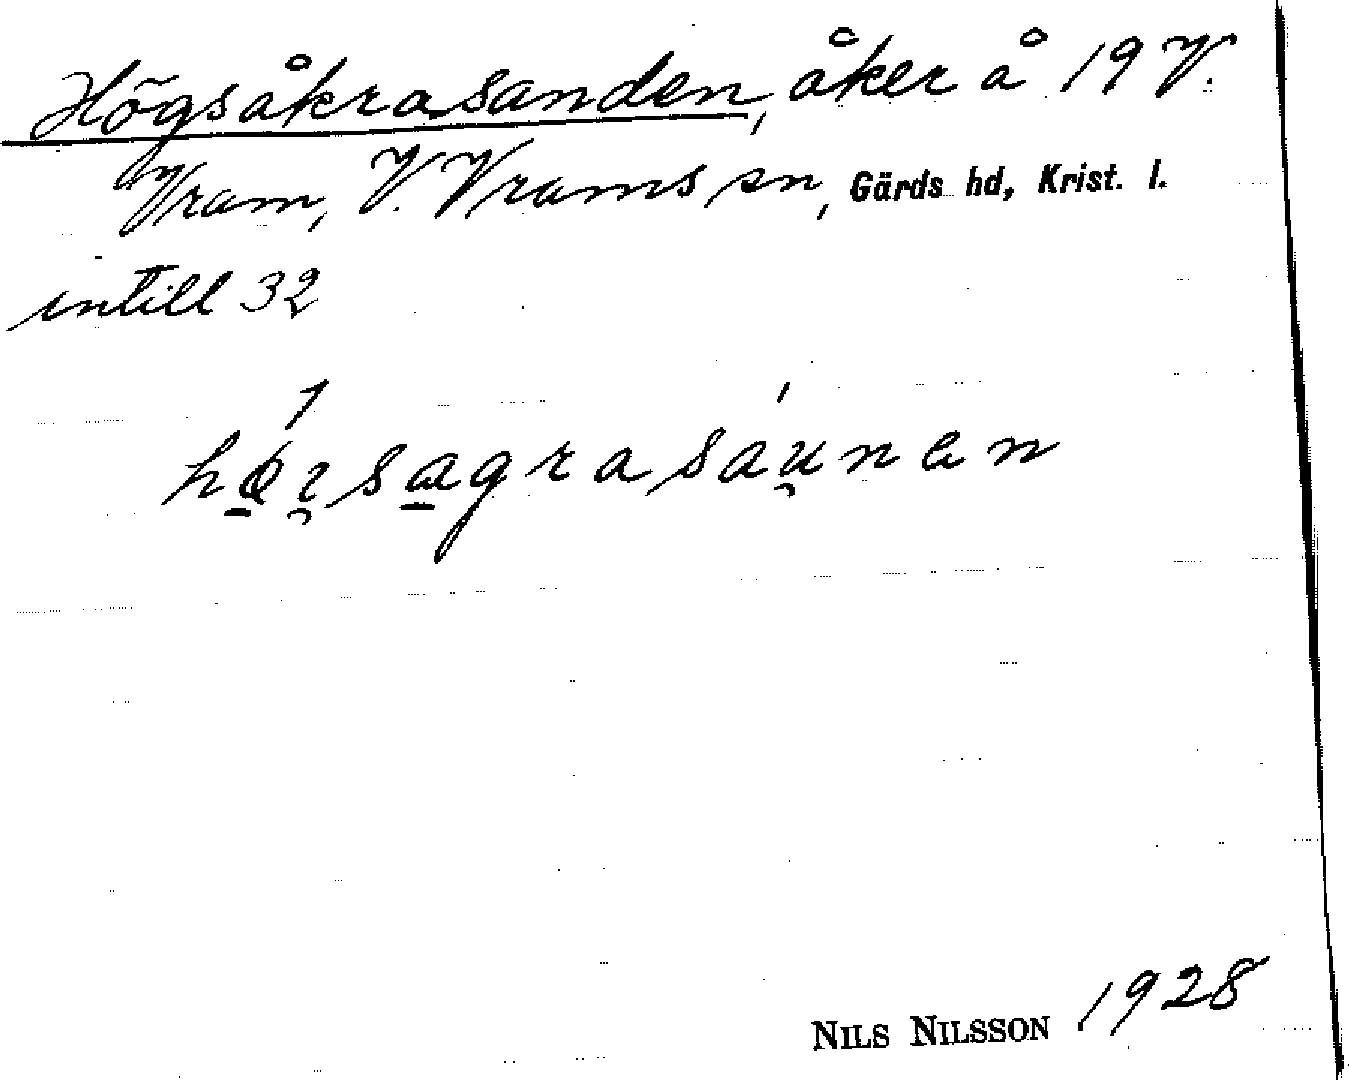 Högsåkrasanden, åker å 19 V.
Vram, V. Vrams sn, Gärds hd, Krist. l.
intill 32
NILS NILSSON 1928